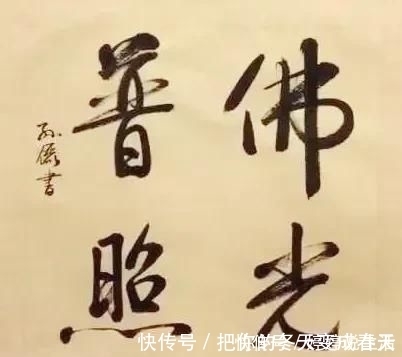 佛光
普照
孙儷書
快传号 / 把你的冬天变成春天